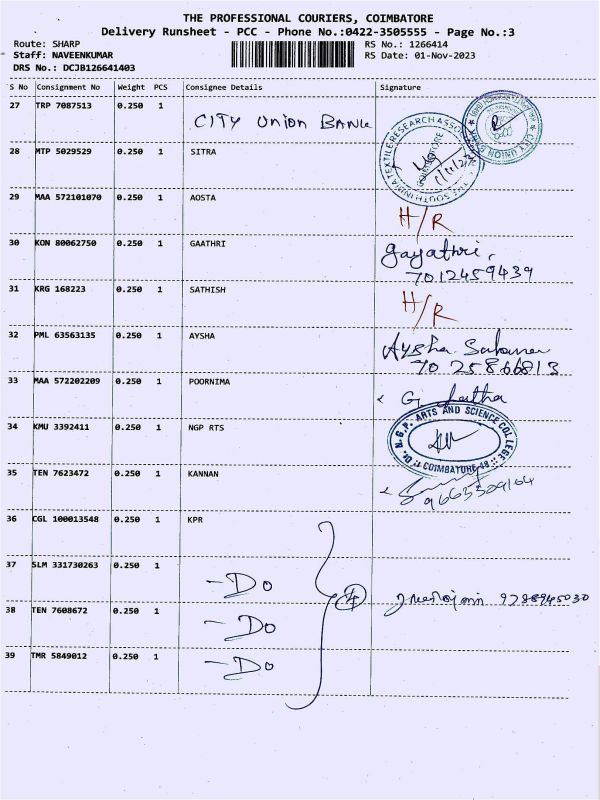 THE PROFESSIONAL COURIERS, COIMBATORE
Delivery Runsheet - PCC - Phone No.:0422-3505555 - Page No.:3
Route: SHARP
RS No.: 1266414
Staff: NAVEENKUMAR
RS Date: 01-Nov-2023
DRS No.: DCJB126641403
S No Consignment No Weight PCS Consignee Details Signature
27 TRP 7087513 0.250 1 CITY UNION BANK
CITY UNION BANK
28 MTP 5029529 0.250 1 SITRA
THE SOUTH INDIA TEXTILE RESEARCH ASSO
COIMBATORE
29 MAA 572101070 0.250 1 AOSTA H/R
30 KON 80062750 0.250 1 GAATHRI gayathri,
7012459439
31 KRG 168223 0.250 1 SATHISH H/R
32 PML 63563135 0.250 1 AYSHA Aysha
70 25866813
33 MAA 572202209 0.250 1 POORNIMA
34 KMU 3392411 0.250 1 NGP RTS
Dr. N.G.P. ARTS AND SCIENCE COLLEGE
COIMBATORE 48
35 TEN 7623472 0.250 1 KANNAN
9663509164
36 CGL 100013548 0.250 1 KPR
37 SLM 331730263 0.250 1 -Do
4 9788945030
38 TEN 7608672 0.250 1 -Do
39 TMR 5849012 0.250 1 -Do